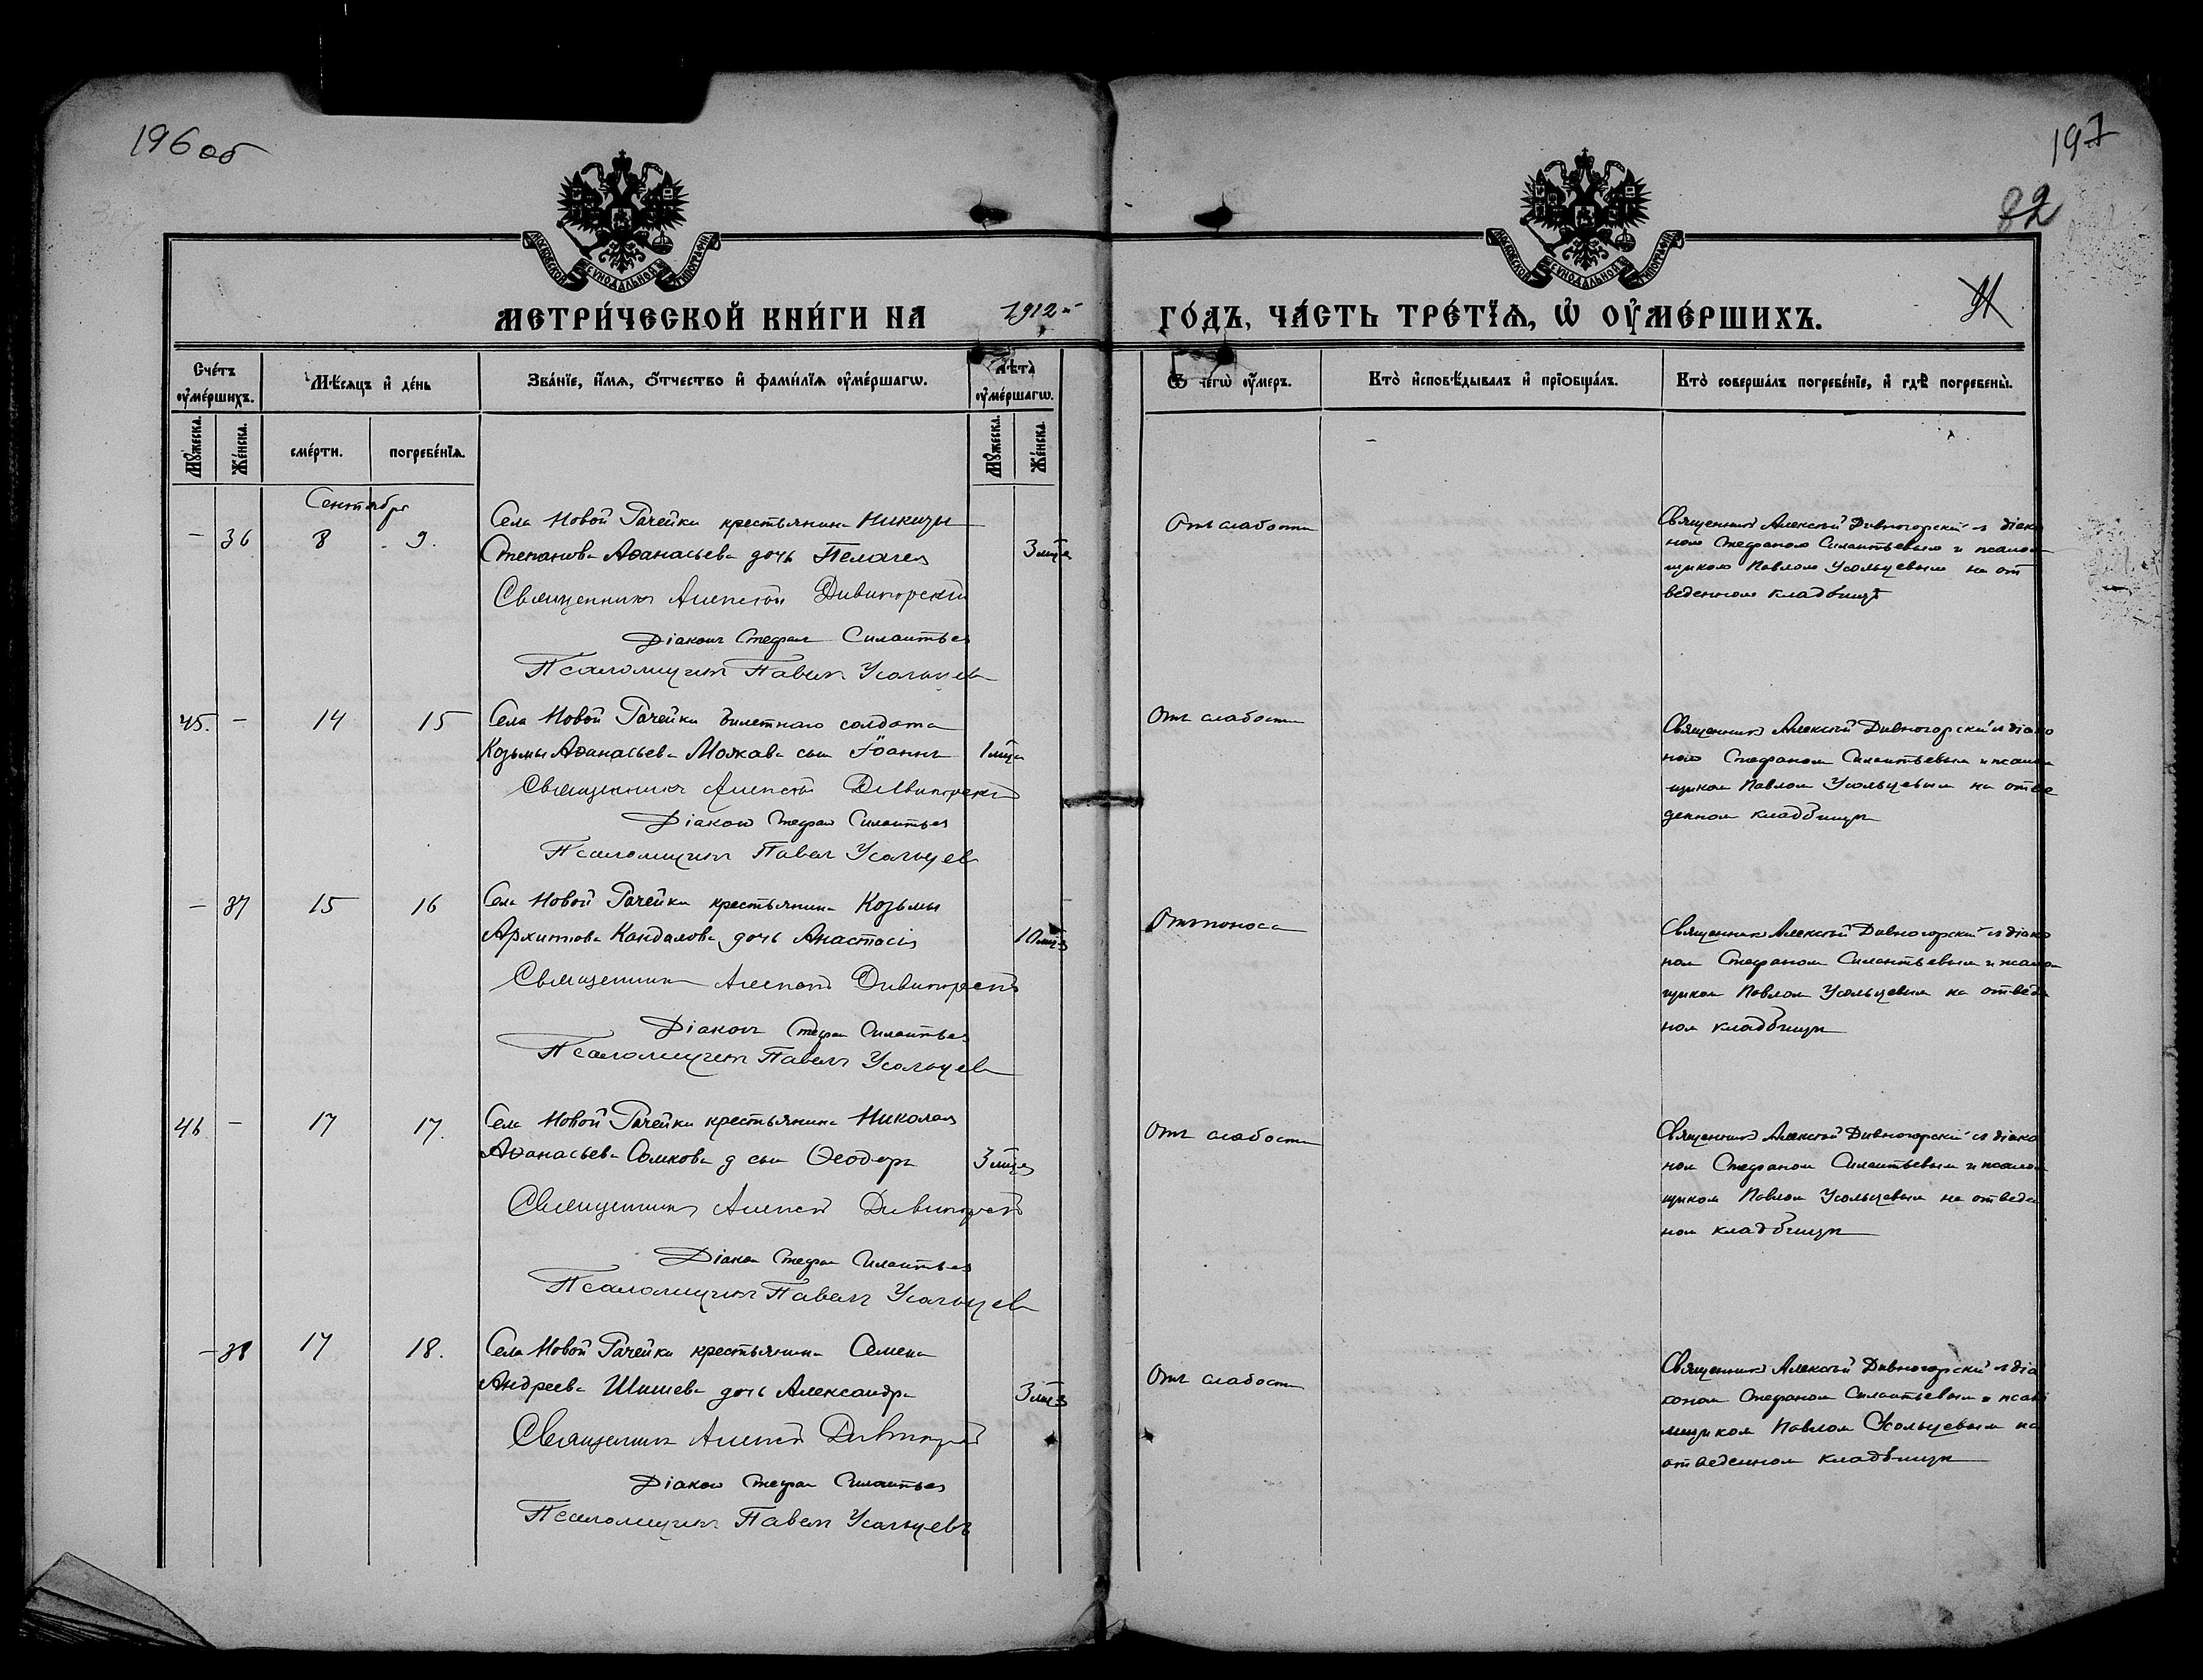 196 об
197
82
91
МОСКОВСКОЙ СѴНОДАЛЬНОЙ ТИПОГРАФІИ
МОСКОВСКОЙ СѴНОДАЛЬНОЙ ТИПОГРАФІИ
МЕТРИ́ЧЕСКОЙ КНИ́ГИ НА 1912 ГО́ДЪ, ЧА́СТЬ ТРЕ́ТЇѦ, Ѡ҆ ОУ҆МЕ́РШИХЪ.
Сче́тъ оу҆ме́ршихъ.
Мꙋ́жеска.
Же́нска.
Мѣ́сяцъ и҆ де́нь
сме́рти.
погребе́нїѧ.
Зва́нїе, и҆́мѧ, о҆́тчество и҆ фами́лїѧ оу҆ме́ршагѡ.
Лѣ́та оу҆ме́ршагѡ.
Мꙋ́жеска.
Же́нска.
Ѿ чегѡ̀ оу҆́меръ.
Кто̀ и҆сповѣ́дывалъ и҆ прїобща́лъ.
Кто̀ соверша́лъ погребе́нїе, и҆ гдѣ̀ погребены̀.
Сентября
— 36 8 9. Села Новой Рачейки крестьянина
Степанова Аѳанасьева дочь Пелагея 3 мѣся
Священникъ Алексѣй Дивногорскій
Діаконъ Стефан Силантьев
Псаломщикъ Павелъ Усольцев
От слабости
Священник Алексѣй Дивногорскій с діако
ном Стефаном Силантьевым и псалом
щиком Павлом Усольцевым на от
веденном кладбищѣ
45. — 14 15 Села Новой Рачейки билетнаго солдата
Козьмы Аѳанасьева сын Іоаннъ 1 мѣся
Священникъ Алексѣй Дивногорскій
Діакон Стефан Силантьев
Псаломщикъ Павел Усольцев
От слабости
Священник Алексѣй Дивногорскій с діако
ном Стефаном Силантьевым и псалом
щиком Павлом Усольцевым на отве
денном кладбищѣ
— 37 15 16 Села Новой Рачейки крестьянина Козьмы
Архипова Кандалова дочь Анастасія 10 мѣся
Священник Алексѣй Дивногорскій
Діаконъ Стефан Силантьев
Псаломщикъ Павелъ Усольцев
От поноса
Священник Алексѣй Дивногорскій с діако
ном Стефаном Силантьевым и псалом
щиком Павлом Усольцевым на отведе
ном кладбищѣ
46 — 17 17. Села Новой Рачейки крестьянина Николая
Аѳанасьева сын Ѳеодоръ 3 мѣся
Священник Алексѣй Дивногорскій
Діакон Стефан Силантьев
Псаломщикъ Павелъ Усольцев
От слабости
Священник Алексѣй Дивногорскій с діако
ном Стефаном Силантьевым и псалом
щиком Павлом Усольцевым на отведен
ном кладбищѣ
— 38 17 18. Села Новой Рачейки крестьянина Семена
Андреева Шишева дочь Александра 3 мѣся
Священник Алексѣй Дивногорскій
Діакон Стефан Силантьев
Псаломщикъ Павел Усольцевъ
От слабости
Священник Алексѣй Дивногорскій с діа
коном Стефаном Силантьевым и псало
мщиком Павлом Усольцевым на
отведенном кладбищѣ